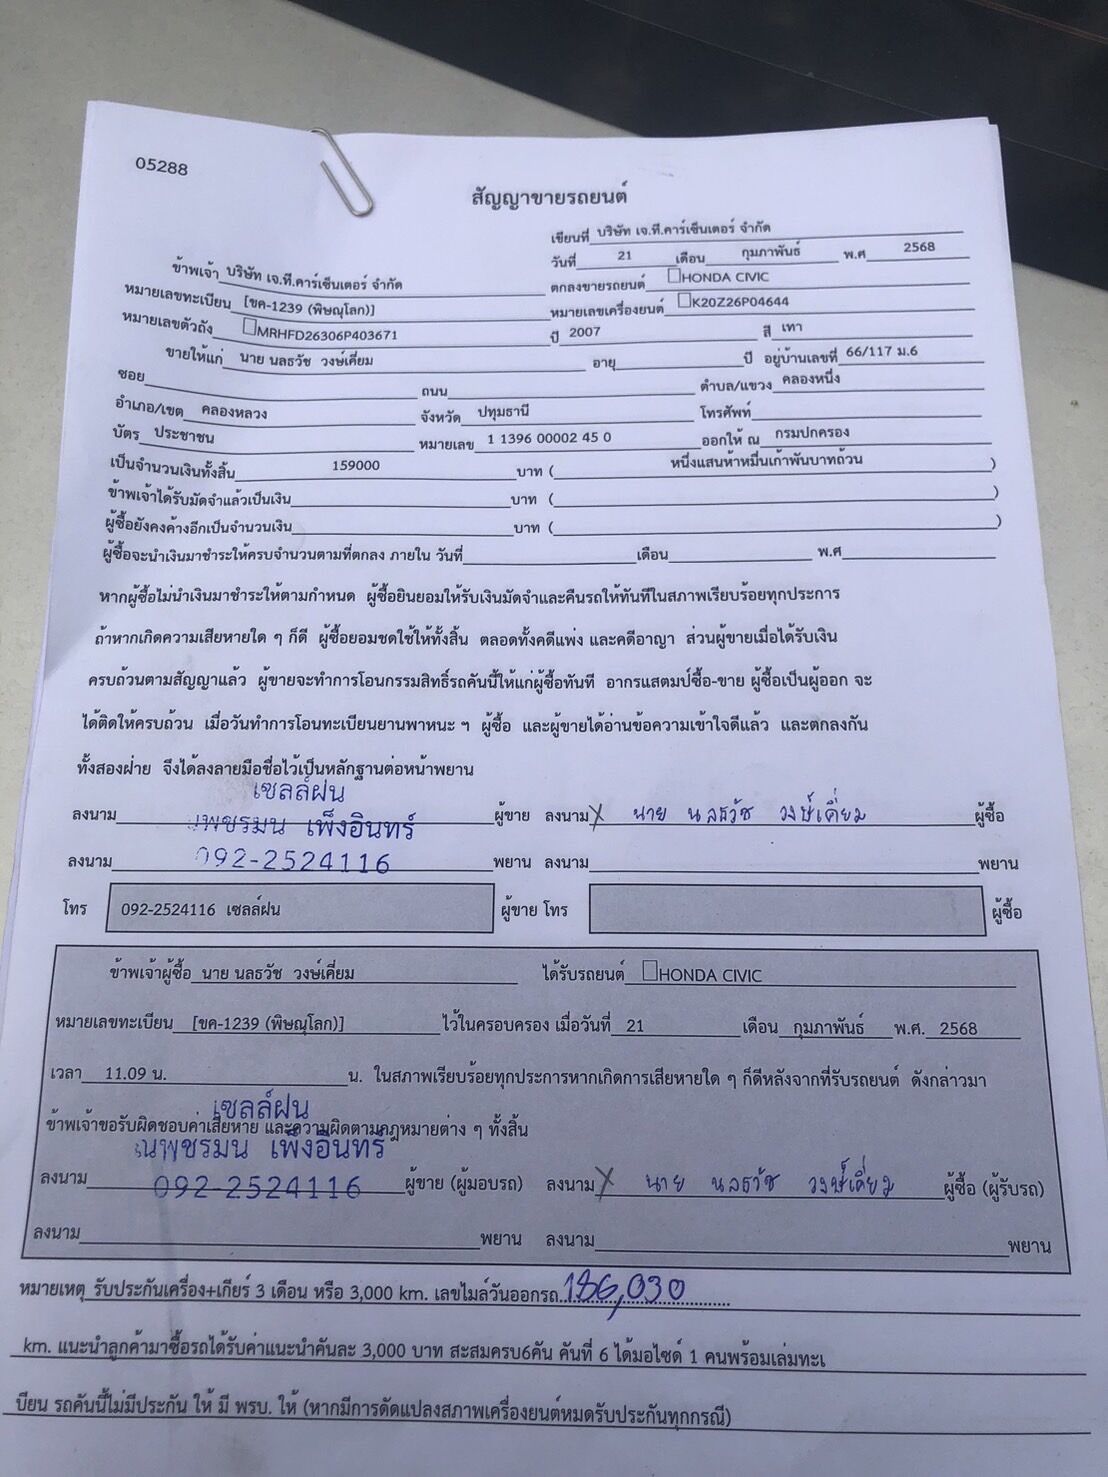 05288
สัญญาขายรถยนต์
เขียนที่ บริษัท เจ.ที.คาร์เซ็นเตอร์ จำกัด
วันที่ 21 เดือน กุมภาพันธ์ พ.ศ 2568
ข้าพเจ้า บริษัท เจ.ที.คาร์เซ็นเตอร์ จำกัด ตกลงขายรถยนต์ HONDA CIVIC
หมายเลขทะเบียน [ขค-1239 (พิษณุโลก)] หมายเลขเครื่องยนต์ K20Z26P04644
หมายเลขตัวถัง MRHFD26306P403671 ปี 2007 สี เทา
ขายให้แก่ นาย นลธวัช วงษ์เคี่ยม อายุ ปี อยู่บ้านเลขที่ 66/117 ม.6
ซอย ถนน ตำบล/แขวง คลองหนึ่ง
อำเภอ/เขต คลองหลวง จังหวัด ปทุมธานี โทรศัพท์
บัตร ประชาชน หมายเลข 1 1396 00002 45 0 ออกให้ ณ กรมปกครอง
เป็นจำนวนเงินทั้งสิ้น 159000 บาท ( หนึ่งแสนห้าหมื่นเก้าพันบาทถ้วน )
ข้าพเจ้าได้รับมัดจำแล้วเป็นเงิน บาท ( )
ผู้ซื้อยังคงค้างอีกเป็นจำนวนเงิน บาท ( )
ผู้ซื้อจะนำเงินมาชำระให้ครบจำนวนตามที่ตกลง ภายใน วันที่ เดือน พ.ศ
หากผู้ซื้อไม่นำเงินมาชำระให้ตามกำหนด ผู้ซื้อยินยอมให้รับเงินมัดจำและคืนรถให้ทันทีในสภาพเรียบร้อยทุกประการ
ถ้าหากเกิดความเสียหายใด ๆ ก็ดี ผู้ซื้อยอมชดใช้ให้ทั้งสิ้น ตลอดทั้งคดีแพ่ง และคดีอาญา ส่วนผู้ขายเมื่อได้รับเงิน
ครบถ้วนตามสัญญาแล้ว ผู้ขายจะทำการโอนกรรมสิทธิ์รถคันนี้ให้แก่ผู้ซื้อทันที อากรแสตมป์ซื้อ-ขาย ผู้ซื้อเป็นผู้ออก จะ
ได้ติดให้ครบถ้วน เมื่อวันทำการโอนทะเบียนยานพาหนะ ฯ ผู้ซื้อ และผู้ขายได้อ่านข้อความเข้าใจดีแล้ว และตกลงกัน
ทั้งสองฝ่าย จึงได้ลงลายมือชื่อไว้เป็นหลักฐานต่อหน้าพยาน
เซลล์ฝน
ลงนาม ณพชรมน เพ็งอินทร์ ผู้ขาย ลงนาม X นาย นลธวัช วงษ์เคี่ยม ผู้ซื้อ
ลงนาม 092-2524116 พยาน ลงนาม พยาน
โทร 092-2524116 เซลล์ฝน ผู้ขาย โทร ผู้ซื้อ
ข้าพเจ้าผู้ซื้อ นาย นลธวัช วงษ์เคี่ยม ได้รับรถยนต์ HONDA CIVIC
หมายเลขทะเบียน [ขค-1239 (พิษณุโลก)] ไว้ในครอบครอง เมื่อวันที่ 21 เดือน กุมภาพันธ์ พ.ศ. 2568
เวลา 11.09 น. น. ในสภาพเรียบร้อยทุกประการหากเกิดการเสียหายใด ๆ ก็ดีหลังจากที่รับรถยนต์ ดังกล่าวมา
เซลล์ฝน
ข้าพเจ้าขอรับผิดชอบค่าเสียหาย และความผิดตามกฎหมายต่าง ๆ ทั้งสิ้น
ณพชรมน เพ็งอินทร์
ลงนาม 092-2524116 ผู้ขาย (ผู้มอบรถ) ลงนาม X นาย นลธวัช วงษ์เคี่ยม ผู้ซื้อ (ผู้รับรถ)
ลงนาม พยาน ลงนาม พยาน
หมายเหตุ รับประกันเครื่อง+เกียร์ 3 เดือน หรือ 3,000 km. เลขไมล์วันออกรถ 186,030
km. แนะนำลูกค้ามาซื้อรถได้รับค่าแนะนำคันละ 3,000 บาท สะสมครบ6คัน คันที่ 6 ได้มอไซด์ 1 คนพร้อมเล่มทะเ
บียน รถคันนี้ไม่มีประกัน ให้ มี พรบ. ให้ (หากมีการดัดแปลงสภาพเครื่องยนต์หมดรับประกันทุกกรณี)